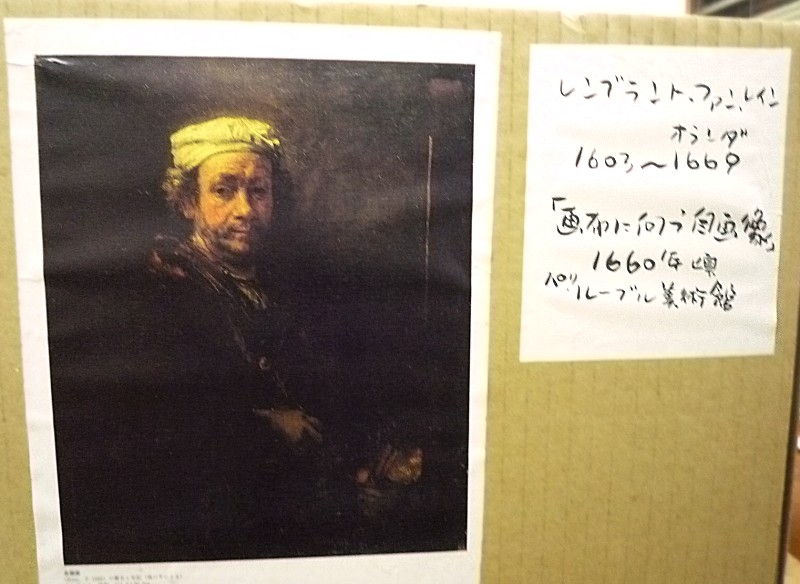 レンブラント、ファン、レイン
オランダ
1603〜1669
「画布に向う自画像」
1660年頃
パリ ルーブル美術館